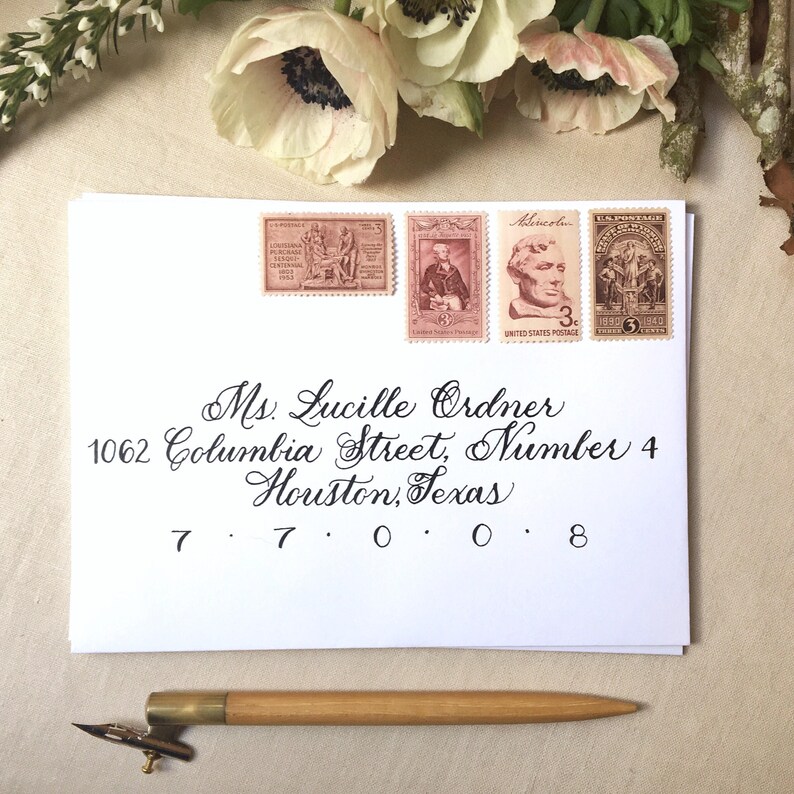 U.S. POSTAGE 3
LOUISIANA
PURCHASE
SESQUI-
CENTENNIAL
1803
1953
MONROE
LIVINGSTON
3¢
United States Postage
A. Lincoln
3c
UNITED STATES POSTAGE
U.S. POSTAGE
STATE OF WYOMING
1890 3 1940
THREE CENTS
Ms. Lucille Ordner
1062 Columbia Street, Number 4
Houston, Texas
7 · 7 · 0 · 0 · 8